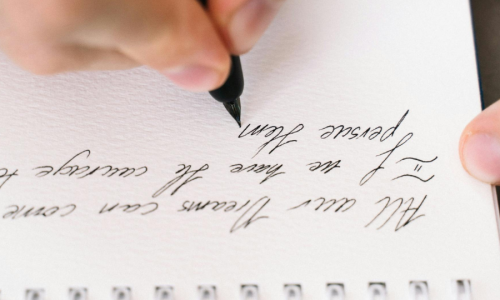 All our Dreams can come
If we have the courage t
persue them